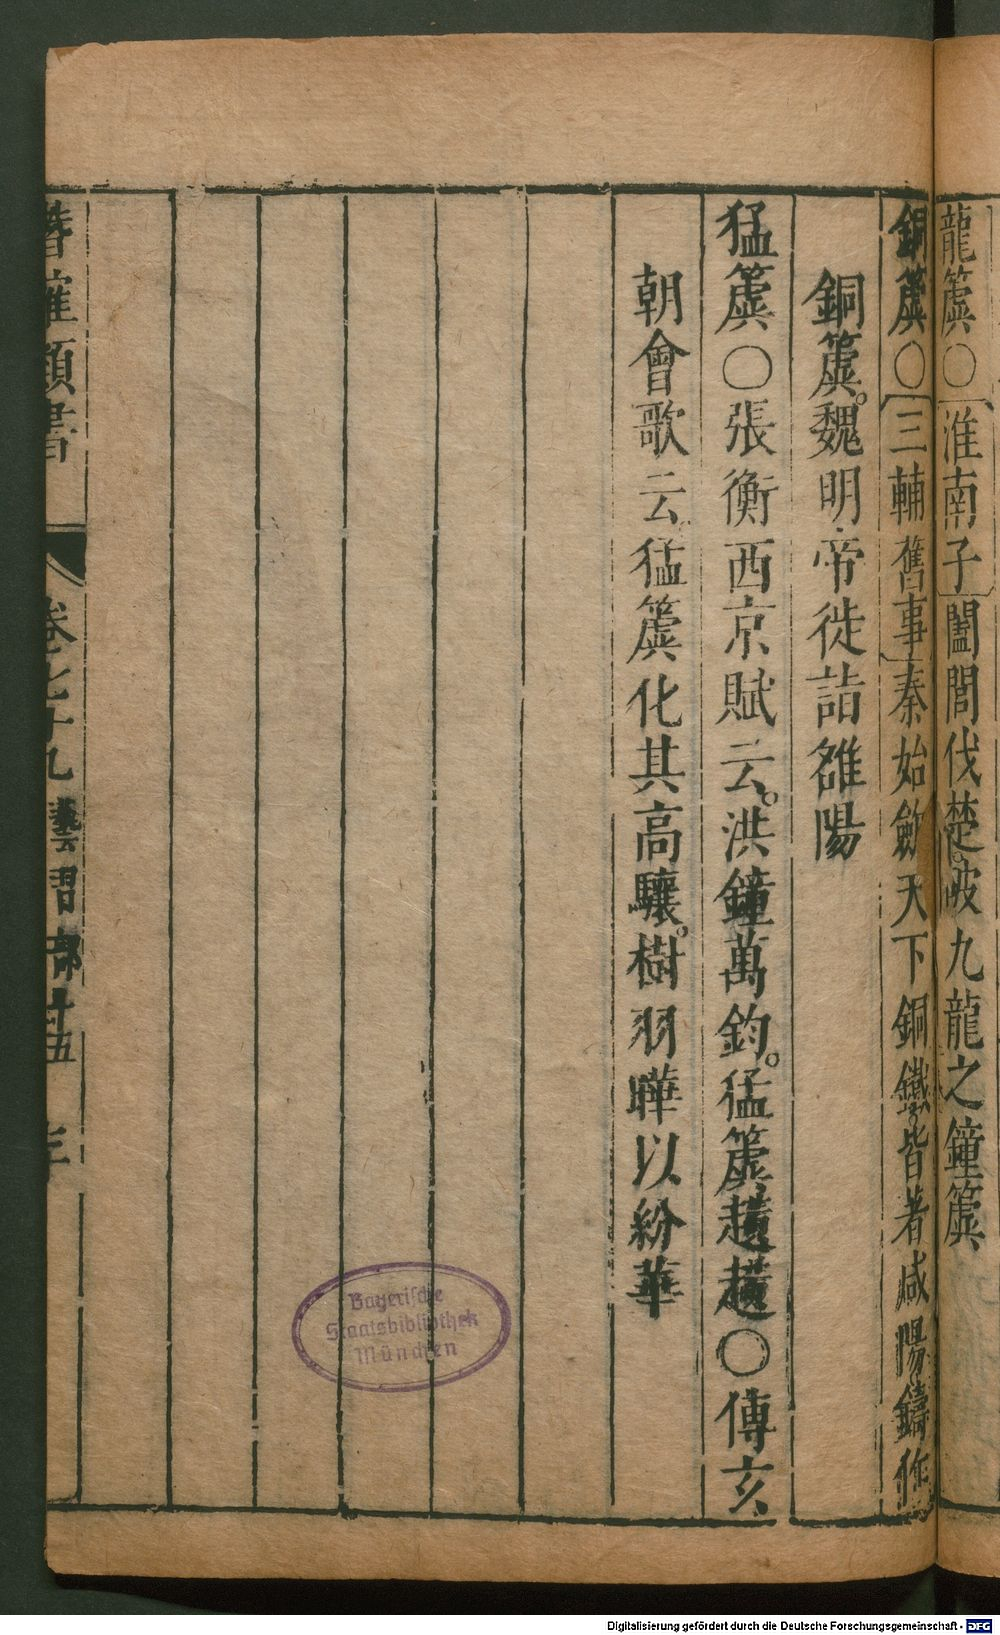 龍簴○〔淮南子〕闔閭伐楚。破九龍之鐘簴
銅簴○〔三輔舊事〕秦始歛天下銅鐵皆著咸陽鑄作
銅簴。魏明帝徙詣雒陽
猛簴○張衡西京賦云。洪鐘萬鈞。猛簴趪趪○傅玄
朝會歌云猛簴化其高驤。樹羽曄以紛華
潛確類書
卷之
九
藝習部十五
Bayerische
Staatsbibliothek
München
Digitalisierung gefördert durch die Deutsche Forschungsgemeinschaft - DFG